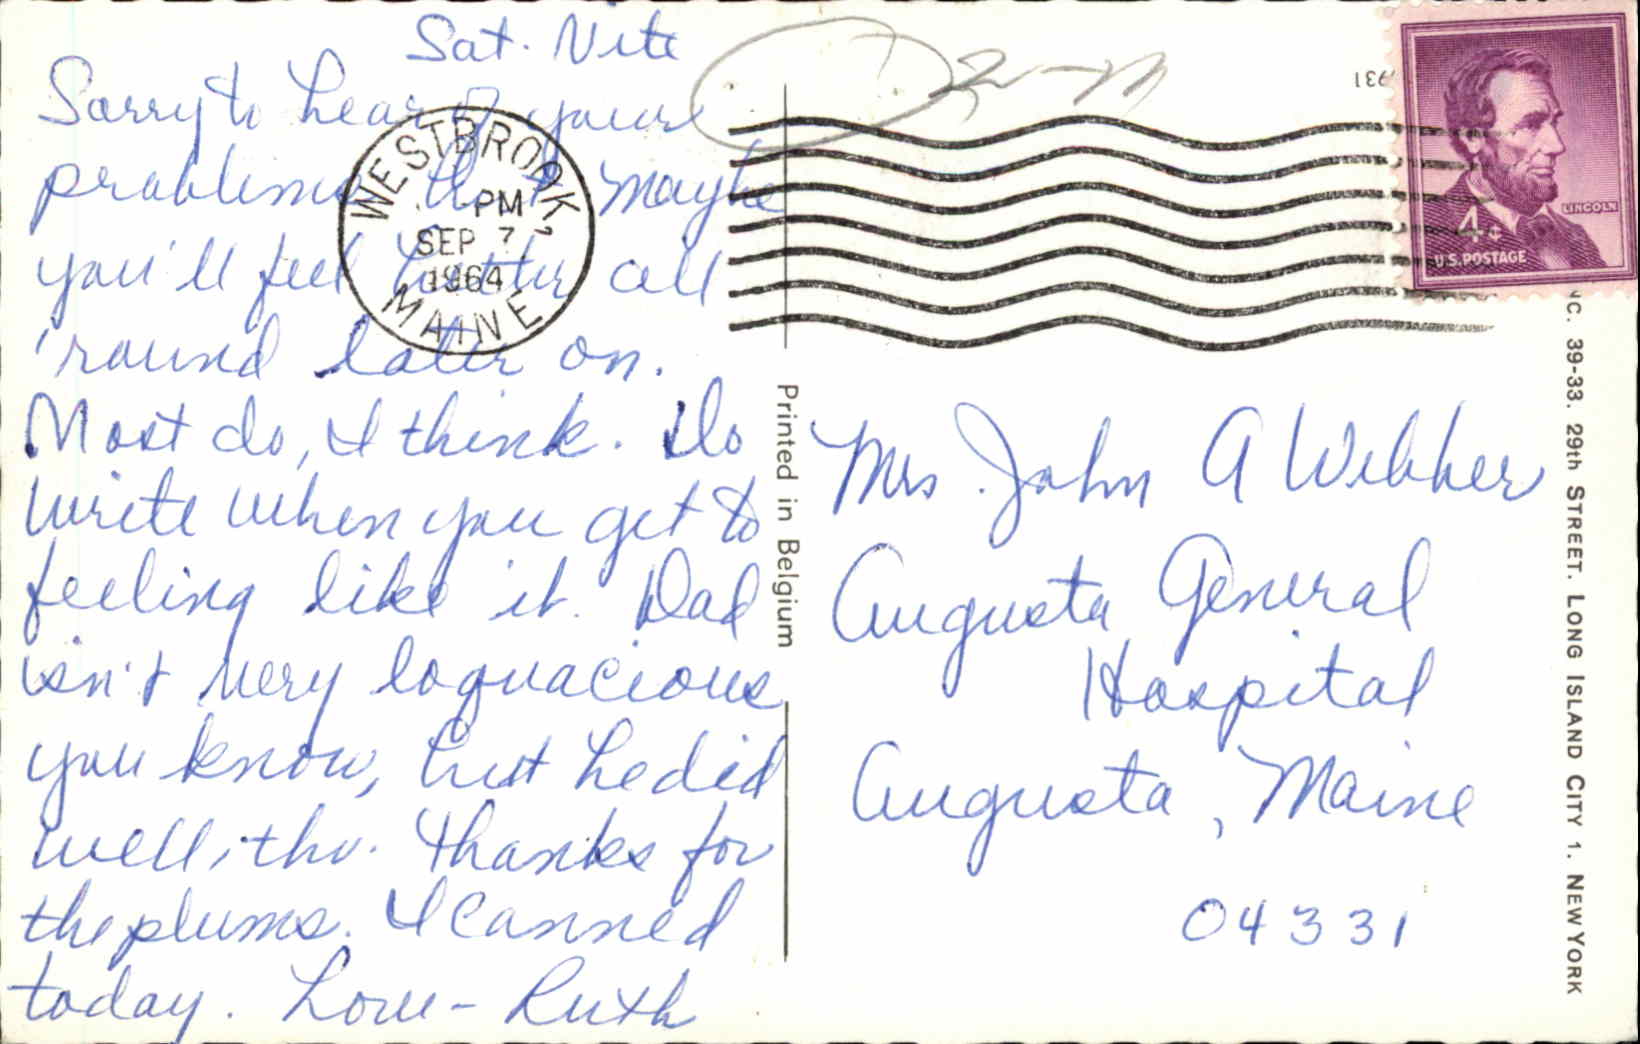 Sat. Nite
Sorry to hear of your
problems tho'. Maybe
you'll feel better all
'round later on.
Most do, I think. Do
write when you get to
feeling like it. Dad
isn't very loquacious
you know, but he did
well, tho. Thanks for
the plums. I canned
today. Love - Ruth
WESTBROOK,
PM
SEP 7
1964
MAINE
Printed in Belgium
931
LINCOLN
4¢
U.S. POSTAGE
Mrs. John A Webber
Augusta General
Hospital
Augusta, Maine
04331
NC. 39-33. 29th STREET. LONG ISLAND CITY 1. NEW YORK